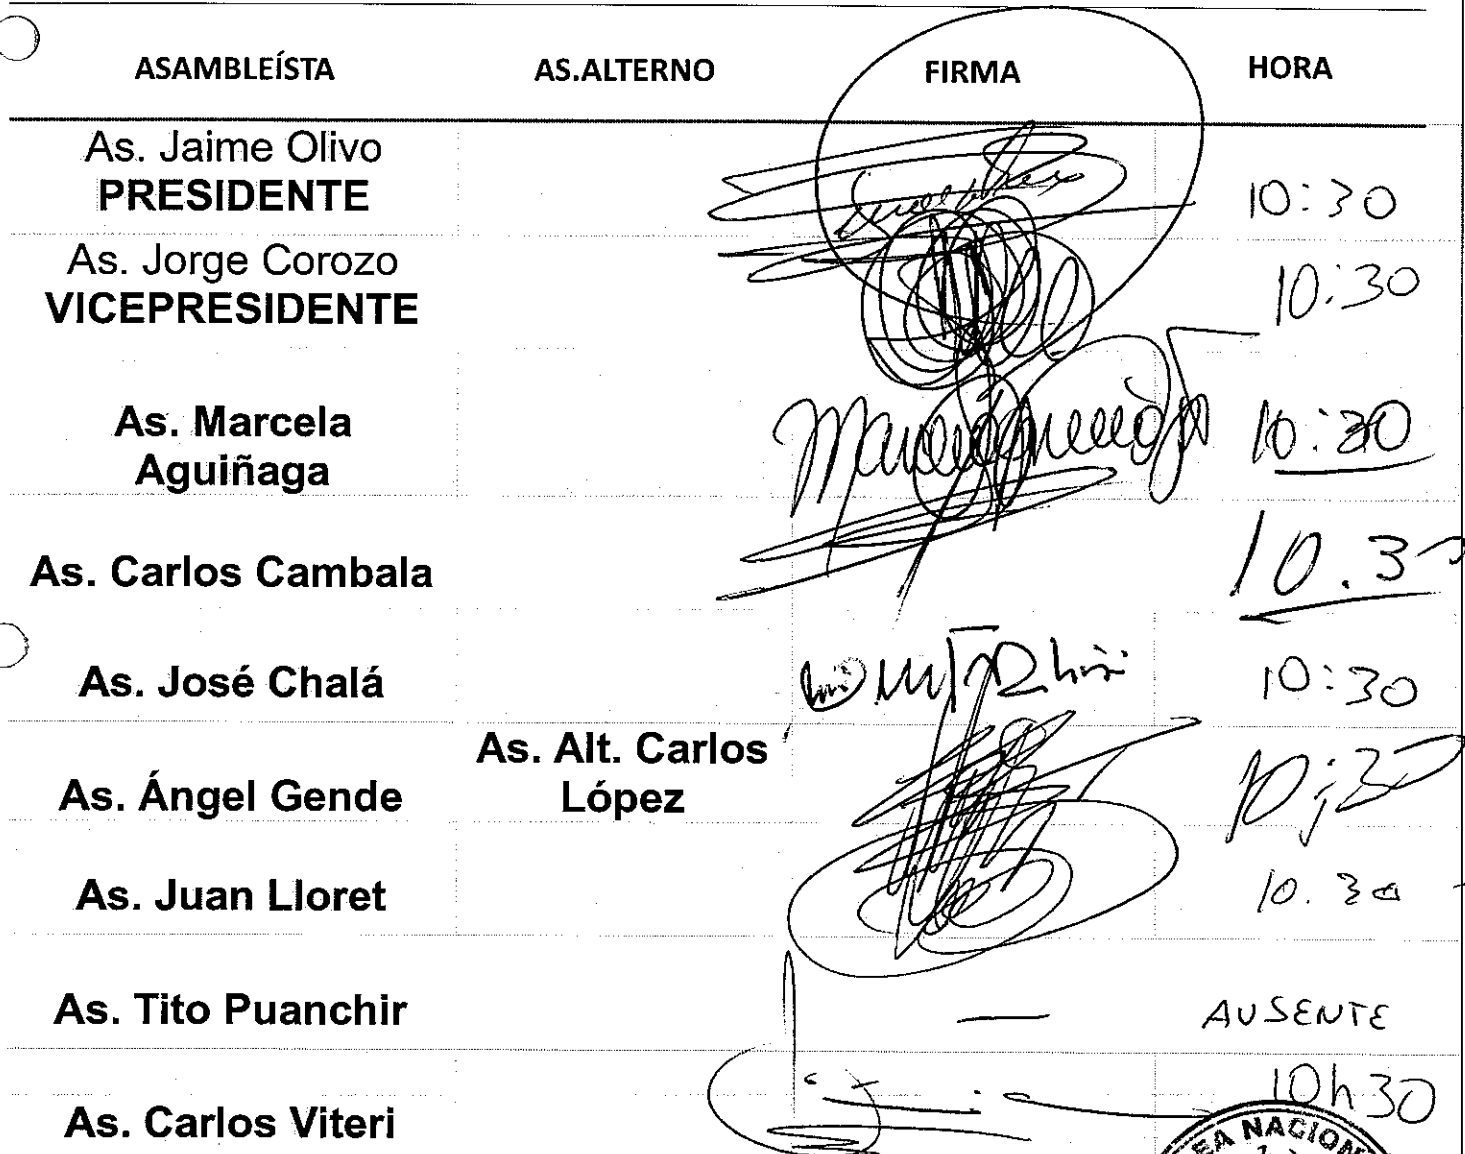 ASAMBLEÍSTA AS.ALTERNO FIRMA HORA
As. Jaime Olivo
PRESIDENTE 10:30
As. Jorge Corozo
VICEPRESIDENTE 10:30
As. Marcela
Aguiñaga 10:30
As. Carlos Cambala 10.30
As. José Chalá 10:30
As. Alt. Carlos
As. Ángel Gende López 10:30
As. Juan Lloret 10.30
As. Tito Puanchir — AUSENTE
As. Carlos Viteri 10h30
NACION